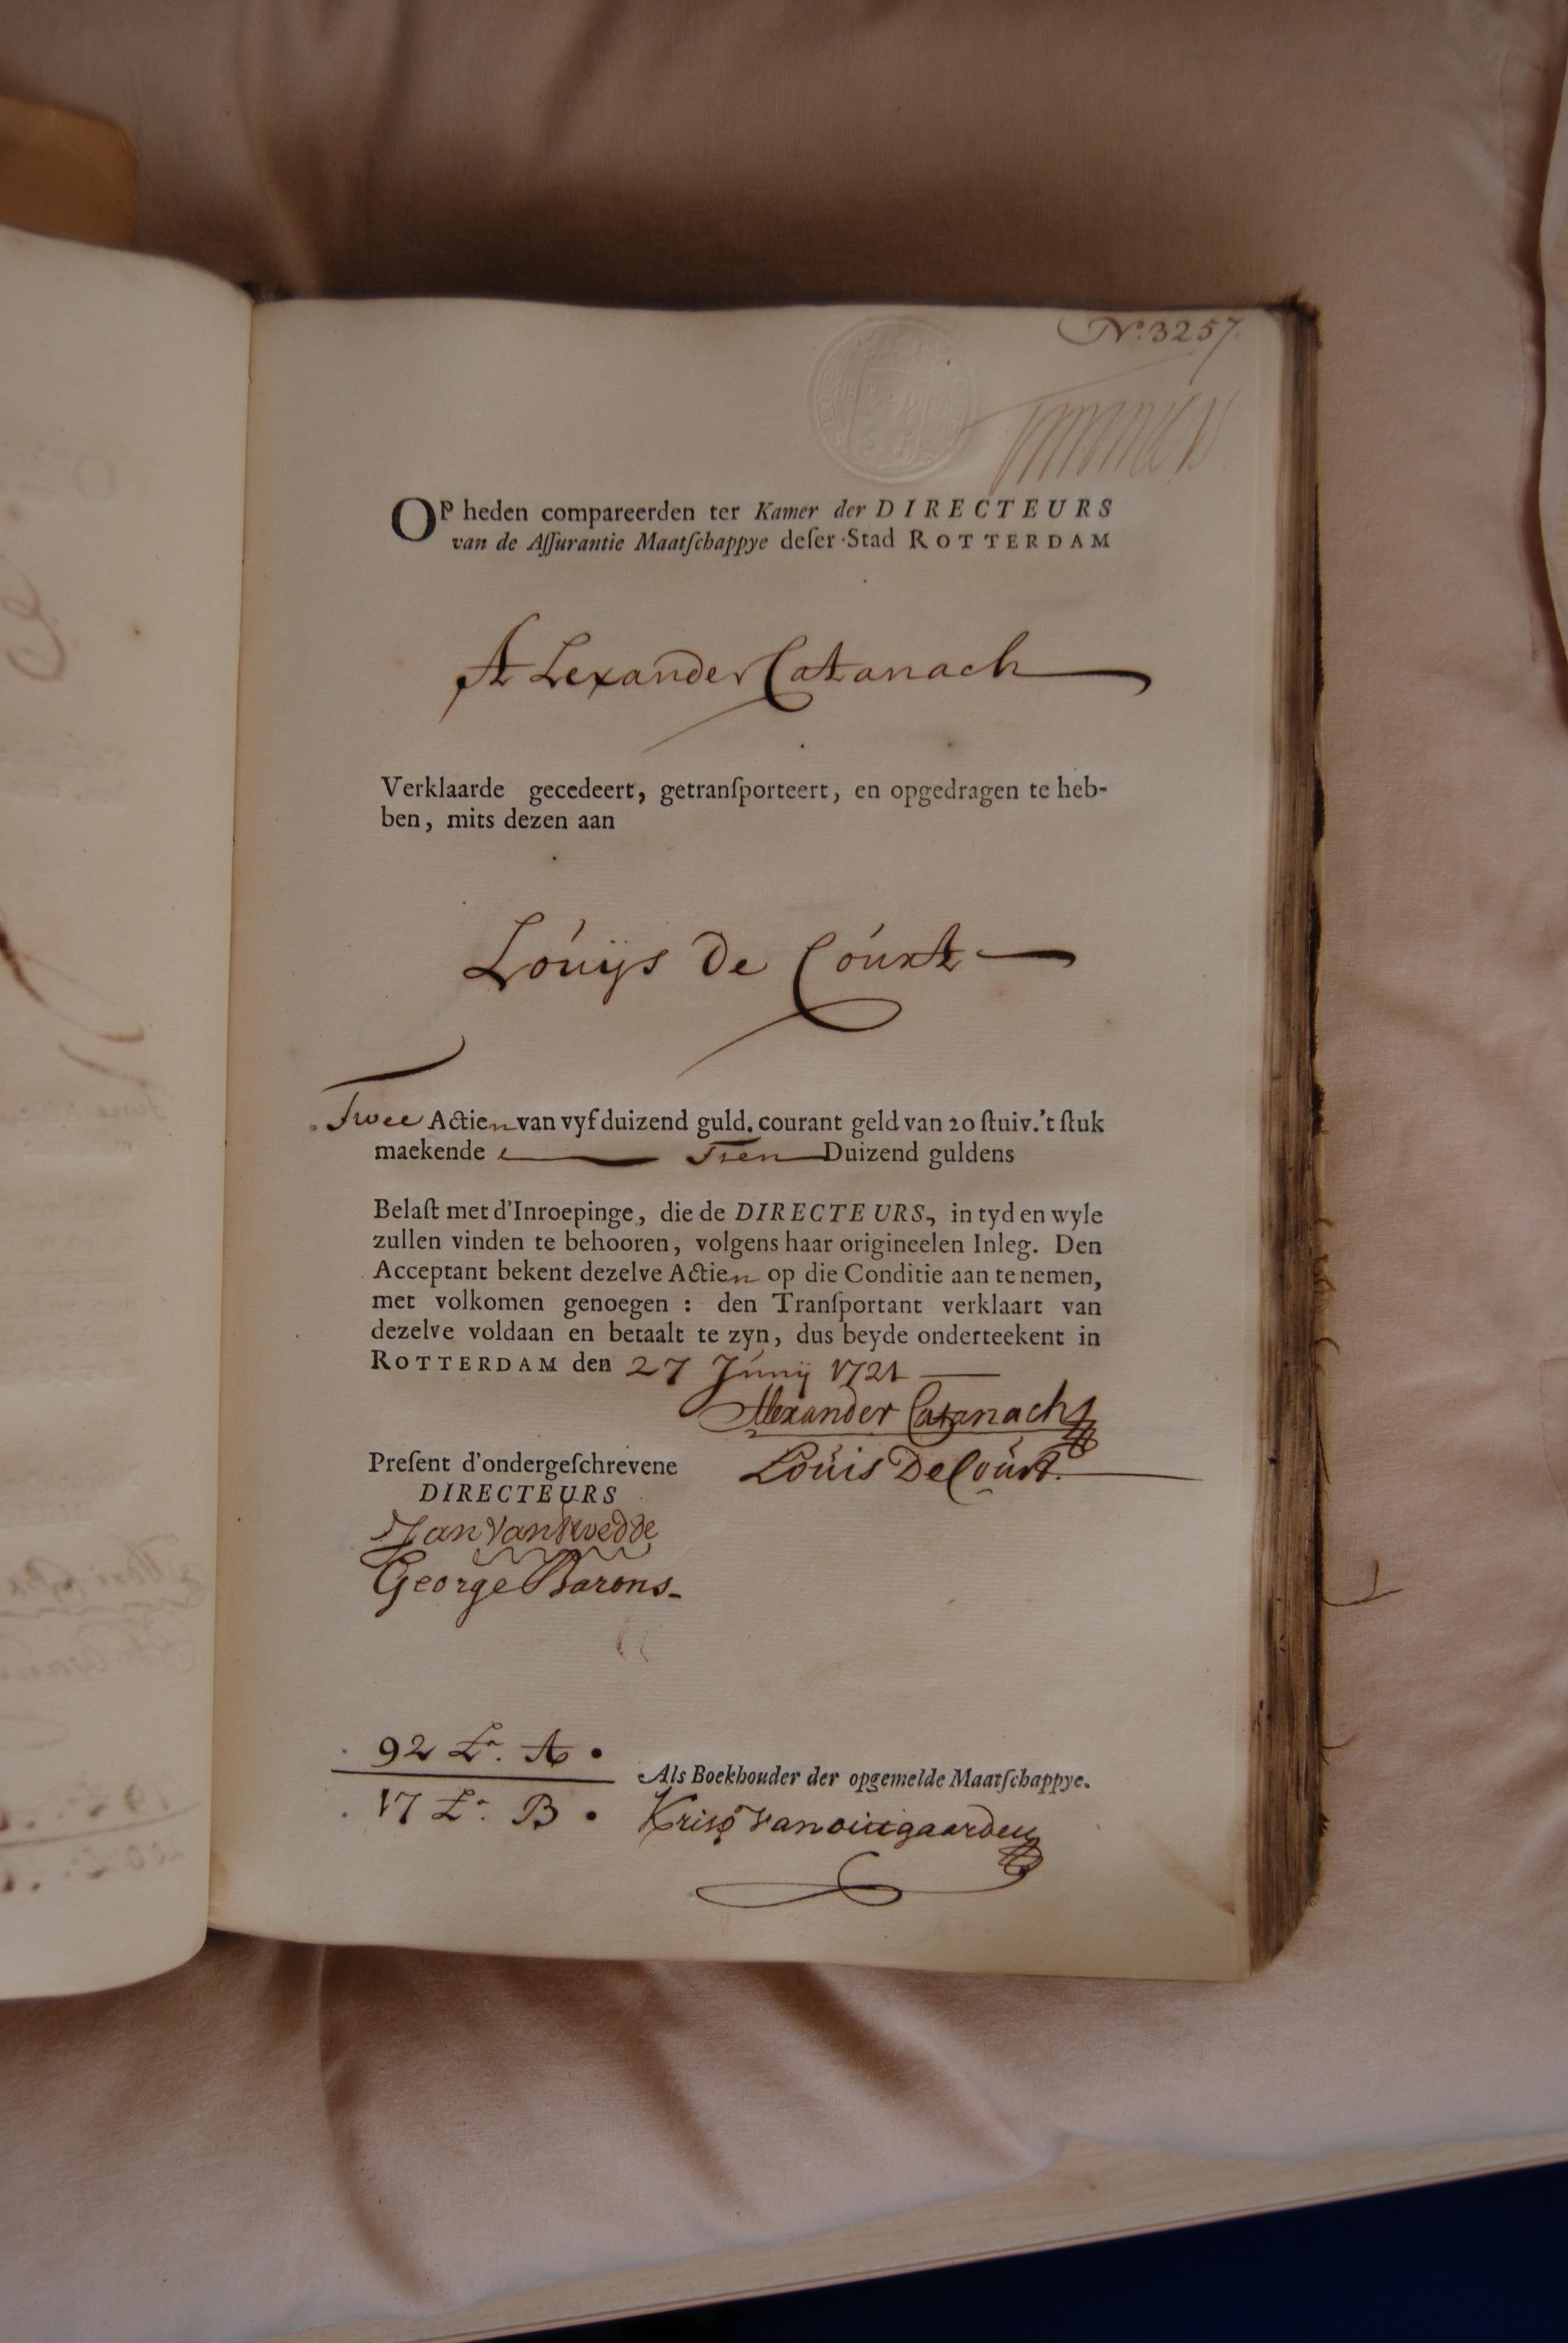 No. 3257.
OP heden compareerden ter Kamer der DIRECTEURS
van de Aſſurantie Maatſchappye deſer Stad ROTTERDAM
ALexander Catanach
Verklaarde gecedeert, getranſporteert, en opgedragen te heb-
ben, mits dezen aan
Loúijs De Coúrt
Twee Actien van vyf duizend guld. courant geld van 20 ſtuiv. 't ſtuk
maekende Tien Duizend guldens
Belaſt met d'Inroepinge, die de DIRECTEURS, in tyd en wyle
zullen vinden te behooren, volgens haar origineelen Inleg. Den
Acceptant bekent dezelve Actien op die Conditie aan te nemen,
met volkomen genoegen : den Tranſportant verklaart van
dezelve voldaan en betaalt te zyn, dus beyde onderteekent in
ROTTERDAM den 27 Júnij 1721
Alexander Catanach
Preſent d'ondergeſchrevene
Loúis De Coúrt.
DIRECTEURS
Jan Van
George Barons
92 Lr. A
Als Boekhouder der opgemelde Maatſchappye.
17 Lr. B